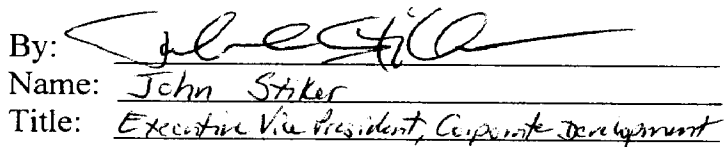 By: John Stiker
Name: John Stiker
Title: Executive Vice President, Corporate Development